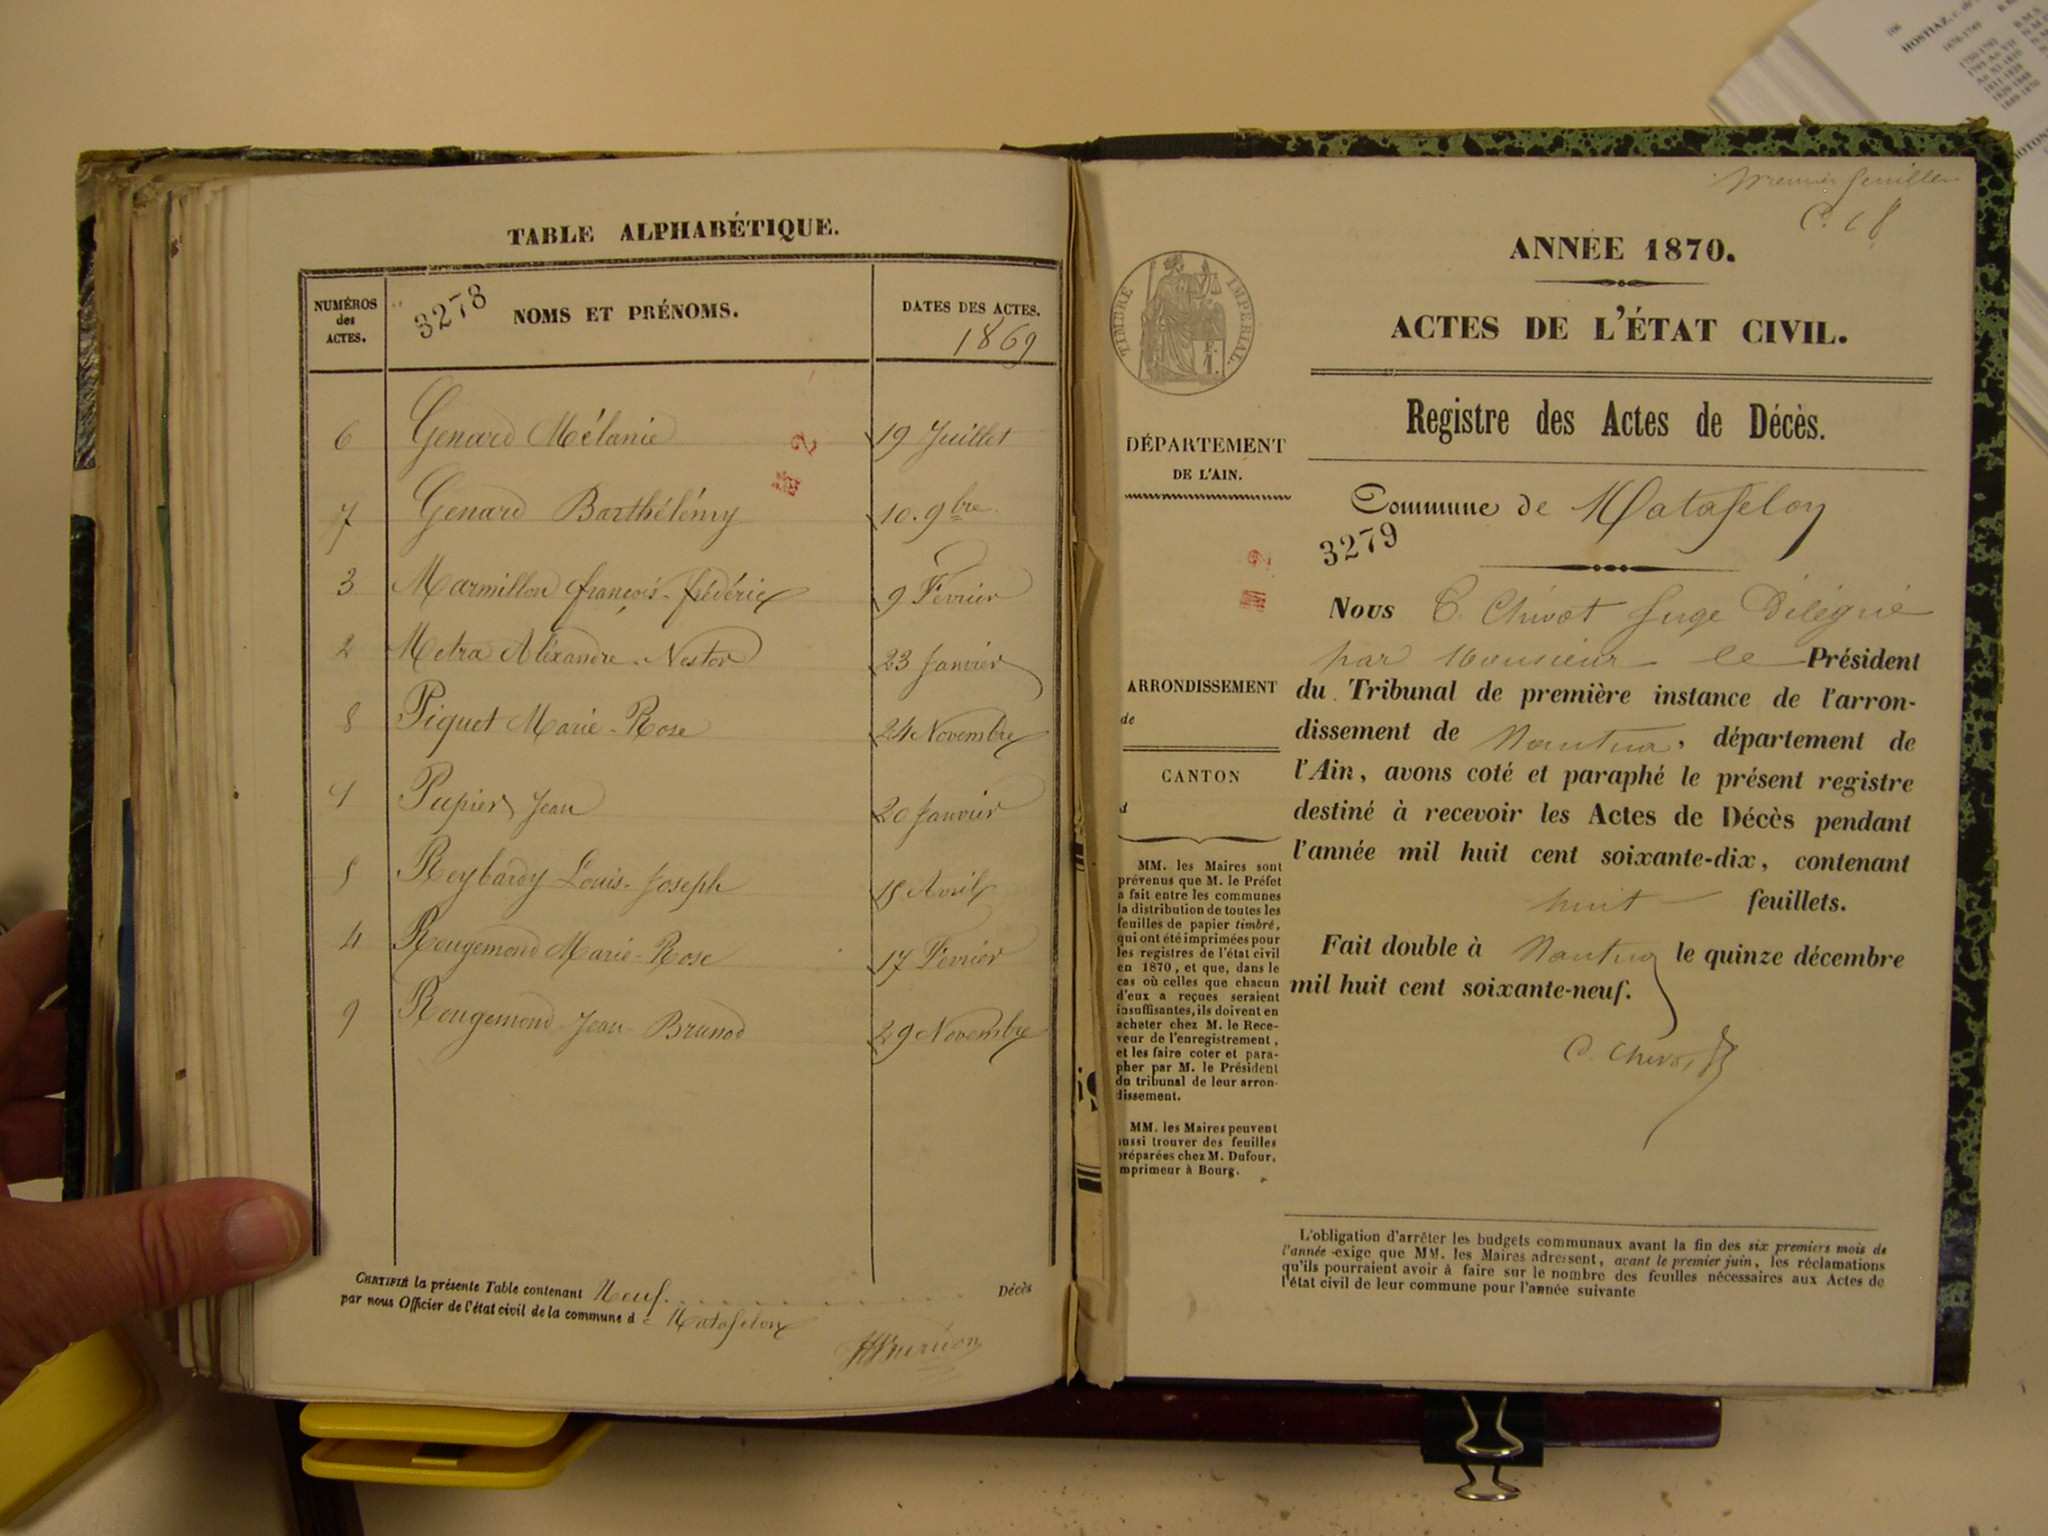 TABLE ALPHABÉTIQUE.
NUMÉROS des ACTES.
3278
NOMS ET PRÉNOMS.
DATES DES ACTES.
1869
6 Genard Mélanie 19 Juillet
7 Genard Barthélémy 10. 9bre
3 Marmillon françois-frédéric 9 Fevrier
2 Metra Aléxandre-Nestor 23 Janvier
8 Piquet Marie-Rose 24 Novembre
1 Papier Jean 20 Janvier
5 Reybardy Louis-Joseph 18 Avril
4 Rougemond Marie-Rose 17 Fevrier
9 Rougemond Jean-Brunod 29 Novembre
CERTIFIÉ la présente Table contenant Neuf Décès
par nous Officier de l'état civil de la commune d e Matafelon
premier feuillet
ANNÉE 1870.
ACTES DE L'ÉTAT CIVIL.
TIMBRE IMPÉRIAL.
Registre des Actes de Décès.
DÉPARTEMENT
DE L'AIN.
Commune de Matafelon
3279
Nous C. Chivot Juge Délégué
par Monsieur le Président
du Tribunal de première instance de l'arron-
dissement de Nantua, département de
l'Ain, avons coté et paraphé le présent registre
destiné à recevoir les Actes de Décès pendant
l'année mil huit cent soixante-dix, contenant
huit feuillets.
Fait double à Nantua le quinze décembre
mil huit cent soixante-neuf.
C. Chivot
ARRONDISSEMENT
de
CANTON
d
MM. les Maires sont
prévenus que M. le Préfet
a fait entre les communes
la distribution de toutes les
feuilles de papier timbré,
qui ont été imprimées pour
les registres de l'état civil
en 1870, et que, dans le
cas où celles que chacun
d'eux a reçues seraient
insuffisantes, ils doivent en
acheter chez M. le Rece-
veur de l'enregistrement,
et les faire coter et para-
pher par M. le Président
du tribunal de leur arron-
dissement.
MM. les Maires peuvent
aussi trouver des feuilles
préparées chez M. Dufour,
imprimeur à Bourg.
L'obligation d'arrêter les budgets communaux avant la fin des six premiers mois de
l'année exige que MM. les Maires adressent, avant le premier juin, les réclamations
qu'ils pourraient avoir à faire sur le nombre des feuilles nécessaires aux Actes de
l'état civil de leur commune pour l'année suivante
HOSTIAZ,